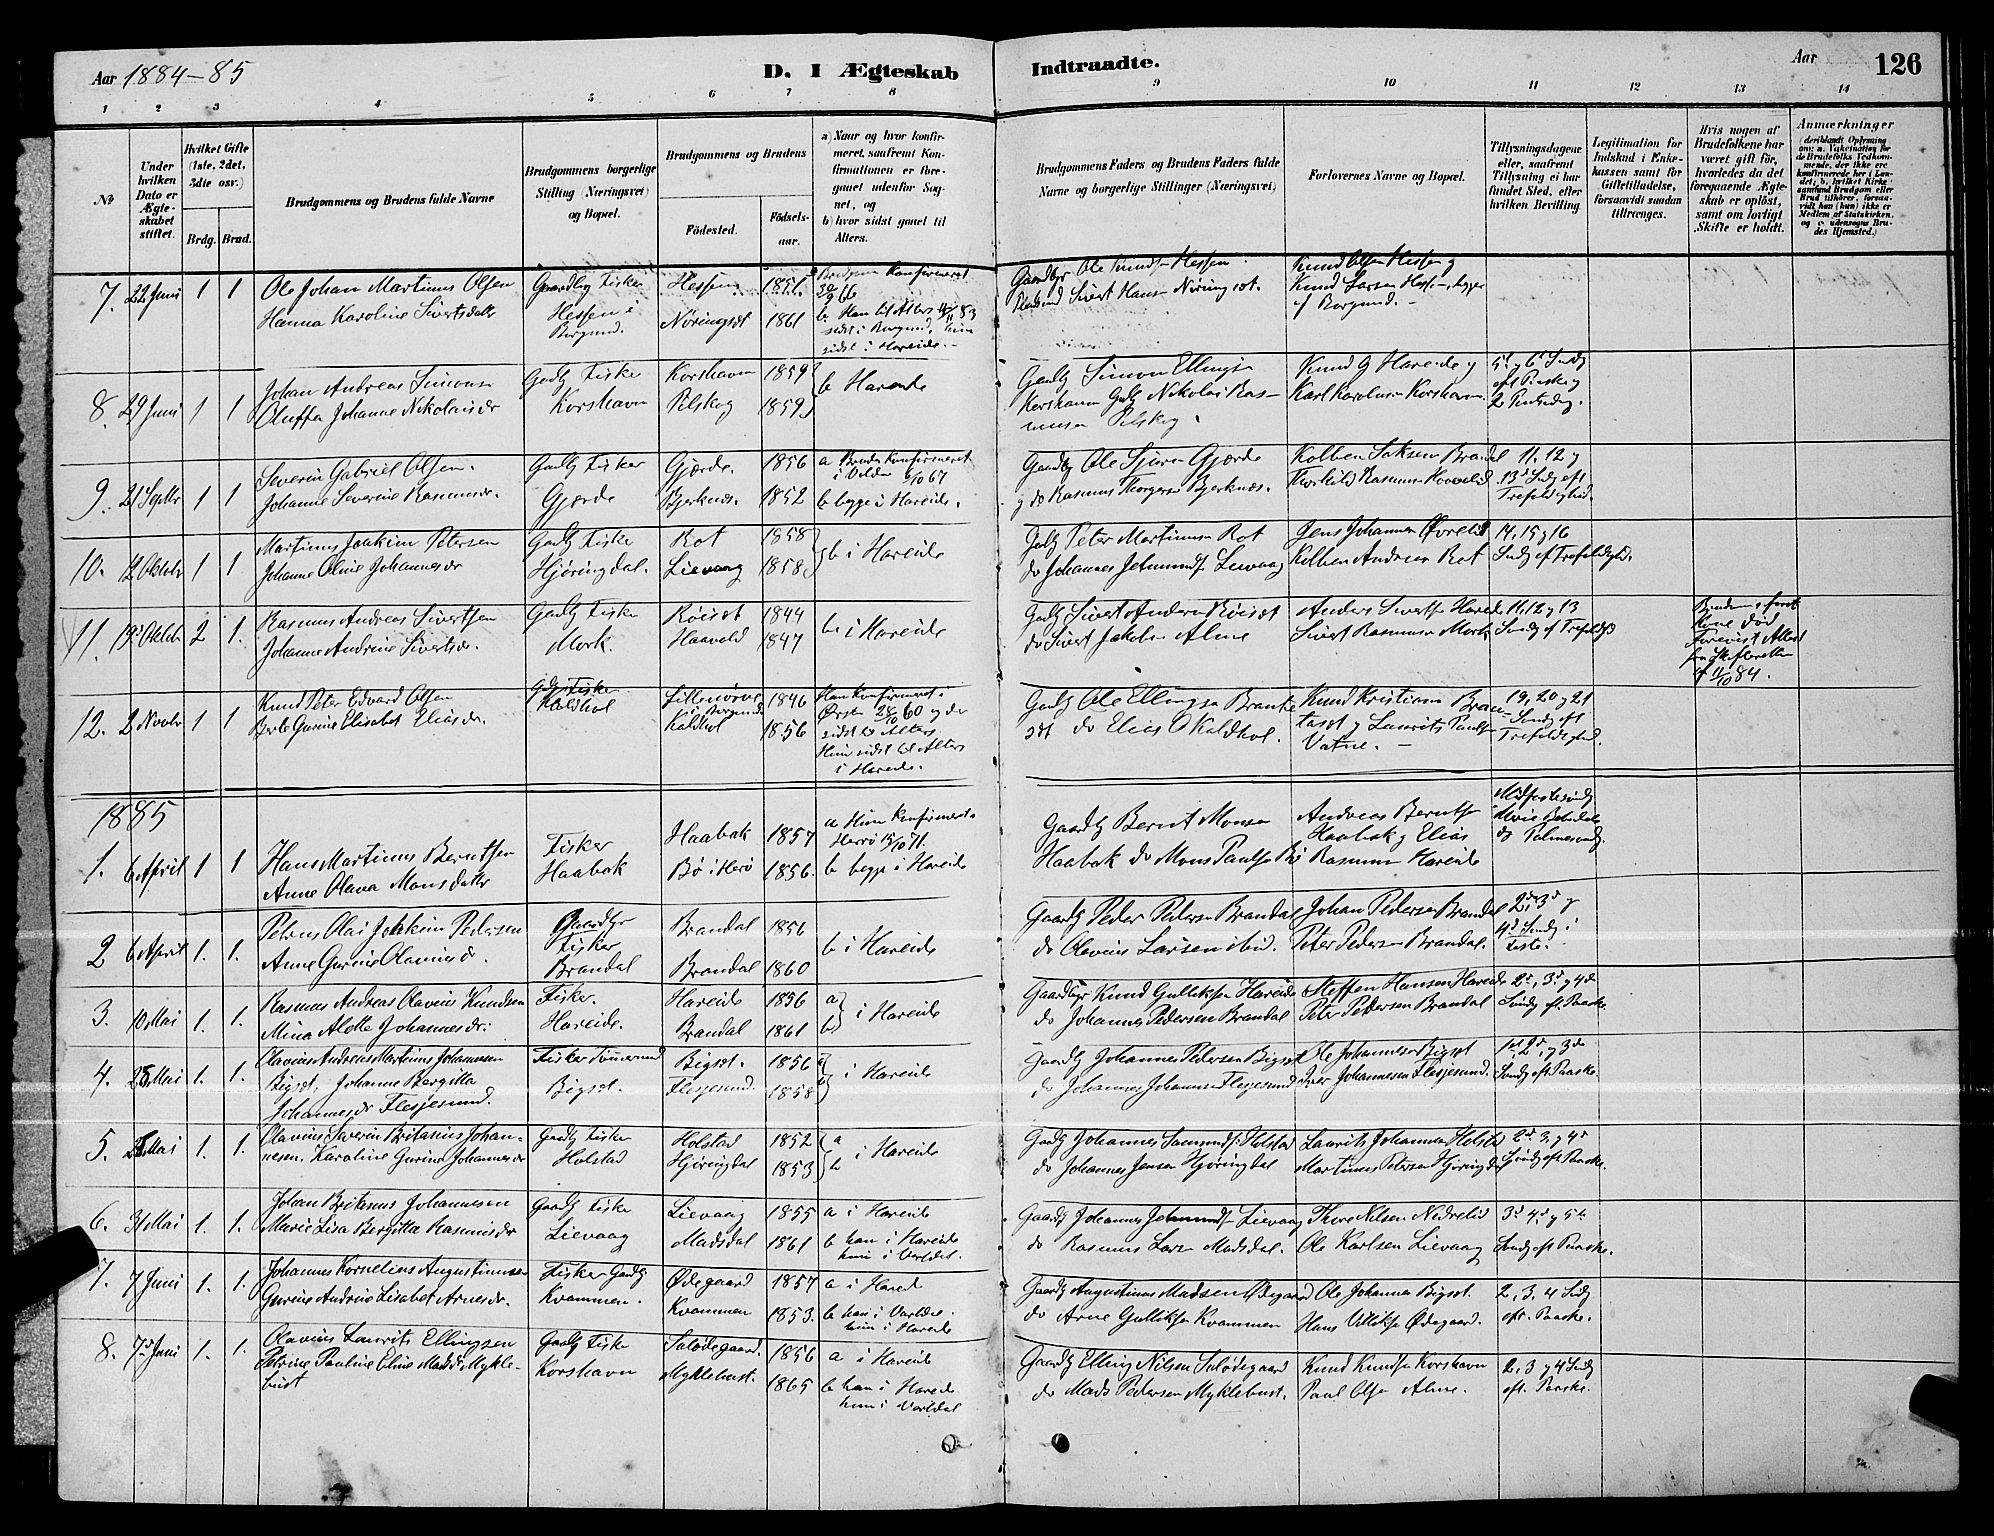 Aar 1884-85
D. I Ægteskab Indtraadte.
Aar 126
1 2 3 4 5 6 7 8 9 10 11 12 13 14
№
Under hvilken Dato er Ægteskabet stiftet.
Hvilket Gifte (1ste, 2det, 3die osv.)
Brdg. Brud.
Brudgommens og Brudens fulde Navne
Brudgommens borgerlige Stilling (Næringsvei) og Bopæl.
Brudgommens og Brudens
Fødested.
Fødsels-aar.
a) Naar og hvor konfirmeret, saafremt Konfirmationen er foregaaet udenfor Sognet, og
b) hvor sidst gaaet til Alters.
Brudgommens Faders og Brudens Faders fulde Navne og borgerlige Stillinger (Næringsvei)
Forlovernes Navne og Bopæl.
Tillysningsdagene eller, saafremt Tillysning ei har fundet Sted, efter hvilken Bevilling
Legitimation for Indskud i Enkekassen samt for Giftetilladelse, forsaavidt saadan tiltrænges.
Hvis nogen af Brudefolkene har været gift før, hvorledes da det foregaaende Ægteskab er opløst, samt om lovligt Skifte er holdt.
Anmærkninger
7. 22 Juni 1 1 Ole Johan Martinus Olsen
Hanna Karoline Sivertsdatter
Gaardbr Fisker
Hessen i
Borgund.
Hessen 1851
Nøringset 1861
Brudgom Konfirmeret
30/9 66
b. Han til Alters 11/11 83
sidst i Borgund, hun
sidst i Hareide.
Gaardbgr Ole Knudsen Hessen.
Sivert Hansen Nøringset.
Knud Olsen Hessen og
Knud Larsen Hessen, begge
af Borgund.
8. 29 Juni 1 1 Johan Andreas Simonsen
Oluffa Johanne Nikolaisdr
Gaardb Fisker
Korshavn
Korshavn 1859
Pilskog 1859
b Hareide
Gaardb Simon Ellingsen
Korshavn Gaardb Nikolai Rasmusen Pilskog
Knud G Hareide og
Karl Karolusen Korshavn
5t og 6t Sndg
eft Paaske og
2 Pintsedag.
9. 21 Septbr 1 1 Severin Gabriel Olsen.
Johanne Severine Rasmusdr.
Gaardb Fisker
Gjerde
Gjerde. 1856
Bjerknæs. 1852
a Bruden Konfirmeret
i Volden 6/10 67
b begge i Hareide.
Gaardb Ole Sjursen Gjerde
og do Rasmus Thorgersen Bjerknæs.
Kolben Saksen Brandal
Thorkild Rasmusen Hovelid
11, 12 og
13d Sndg eft
Trefoldighed.
10. 12 Oktobr 1 1 Martinus Joakim Petersen
Johanne Oline Johannesdr
Gaardb Fiske
Hjøringdal.
Rot 1858
Lievaag 1858
b i Hareide
Gaardb Peter Martinusen Rot
do Johannes Jetmundsen Lievaag
Jens Johannesen Øvrelid
Kolben Andreas Rot
14, 15 og 16
Sndg ef Trefoldighed.
11. 19 Oktobr 2 1. Rasmus Andreas Sivertsen
Johanne Andrine Sivertsdr.
Gaardb Fiske
Mork.
Røiset 1844
Haavold 1847
b i Hareide
Gaardb Sivert Andersen Røiset
do Sivert Jakobsen Alme
Anders Sivertsen Hareide
Sivert Rasmusen Mork
11, 12 og 13
Sndg ef Trefoldighed
første
Kone død
Forevist Attest
fra Skifteretten
af 11/10 84.
12. 2 Novbr 1 1 Knud Peter Edvard Olsen
Berte Gurine Elisabet Eliasdr.
Gaardb Fisker
Kaldhol
i Borgund 1846
Kaldhol 1856
Han Konfirmeret i
Ørsten 28/10 60 og der
sidst til Alters
Hun sidst til Alters
i Hareide.
Gaardb Ole Ellingsen Brautaset
do Elias O Kaldhol.
Knud Kristiansen Brautaset og Laurits Paulsen
Vatne.
19, 20 og 21
Sndg eft
Trefoldighed.
1885
1. 6 April 1 1 Hans Martinus Berntsen
Anne Olava Monsdatter
Fisker
Haabak
Haabak 1857
Bø i Herø 1856.
a Hun Konfirmeret i
Herrø 15/10 71.
b begge i Hareide
Gaardb Bernt Monsen
Haabak do Mons Paulsen Bø
Andreas Berntsen
Haabak og Elias
Rasmusen Hareide
Midfastesøndg
Marie Bebudelse
og Palmesøndg.
2 6 April 1. 1. Petrus Olai Joakim Pedersen
Anne Gurine Olavusdr.
Gaardbr
Fisker
Brandal
Brandal 1856
Brandal 1860
b i Hareide
Gaardb Peder Pedersen Brandal
do Olavus Larsen ibid.
Johan Pedersen Brandal
Peter Pedersen Brandal.
2d, 3d og
4d Sndg i
Faste.
3. 10 Mai 1. 1. Rasmus Andreas Olavius Knudsen
Mina Alette Johannesdr:
Fisker.
Hareide.
Hareide 1856
Brandal 1861
a
b i Hareide
Gaardbgr Knud Gulliksen Hareide
do Johannes Pedersen Brandal
Steffen Hansen Hareide
Peter Pedersen Brandal
2d, 3d og 4de
Sndg eft Paaske.
4. 25 Mai 1. 1. Olavius Andreas Martinus Johannesen
Bigset, Johanne Bergitta
Johannesdr Flesjesund.
Fisker Tømmermand
Bigset.
Bigset. 1856
Flesjesund. 1858
a
b i Hareide
Gaardb Johannes Pedersen Bigset
do Johannes Johannesen Flesjesund
Ole Johannesen Bigset
Iver Johannesen Flesjesund.
1st, 2d, og 3de
Sndg eft Paaske.
5. 25 Mai 1. 1. Olavius Severin Britanius Johannesen. Karoline Gurine Johannesdr
Gaardb Fisker
Holstad
Holstad 1852
Hjøringdal 1853
a
b i Hareide
Gaardb Johannes Samundsen Holstad
do Johannes Jensen Hjøringdal
Laurits Johannesen Holstad
Martinus Petersen Hjøringdal
2d, 3. og 4d
Sndg eft Paaske.
6. 31 Mai 1. 1. Johan Britanus Johannesen
Marie Lisa Bergitta Rasmusdr
Gaardb Fisker
Lievaag
Lievaag 1855
Madsdal 1861
a i Hareide
b han i Hareide
hun i Vartdal.
Gaardb Johannes Jetmundsen Lievaag
do Rasmus Larsen Madsdal.
Thore Nilsen Nedrelid
Ole Karlsen Lievaag
3d 4d og 5te
Sndg eft Paaske.
7. 7 Juni 1. 1. Johannes Kornelius Augustinussen
Gurine Andrine Lisabet Arnesdr.
Fisker Gaardb
Kvammen.
Ødegaard 1857
Kvammen 1853.
a i Hareid
b han i Vartdal.
hun i Hareide
Gaardb Augustinus Madsen Ødegaard
do Arne Gulliksen Kvammen
Ole Johannesen Bigset.
Hans Ulliksen Ødegaard.
2, 3. 4 Sndg
eft. Paaske.
8. 7 Juni 1. 1. Olavius Laurits Ellingsen
Petrine Pauline Eline Madsdr Myklebust
Gaardb Fisker
Korshavn
Salødegaard. 1856
Myklebust. 1865
a i Hareide
b han i Hareide
hun i Vartdal
Gaardb Elling Nilsen Salødegaard
do Mads Pedersen Myklebust.
Knud Knudsen Korshavn
Paul Olsen Alme.
2, 3 og 4 Sndg
eft. Paaske.